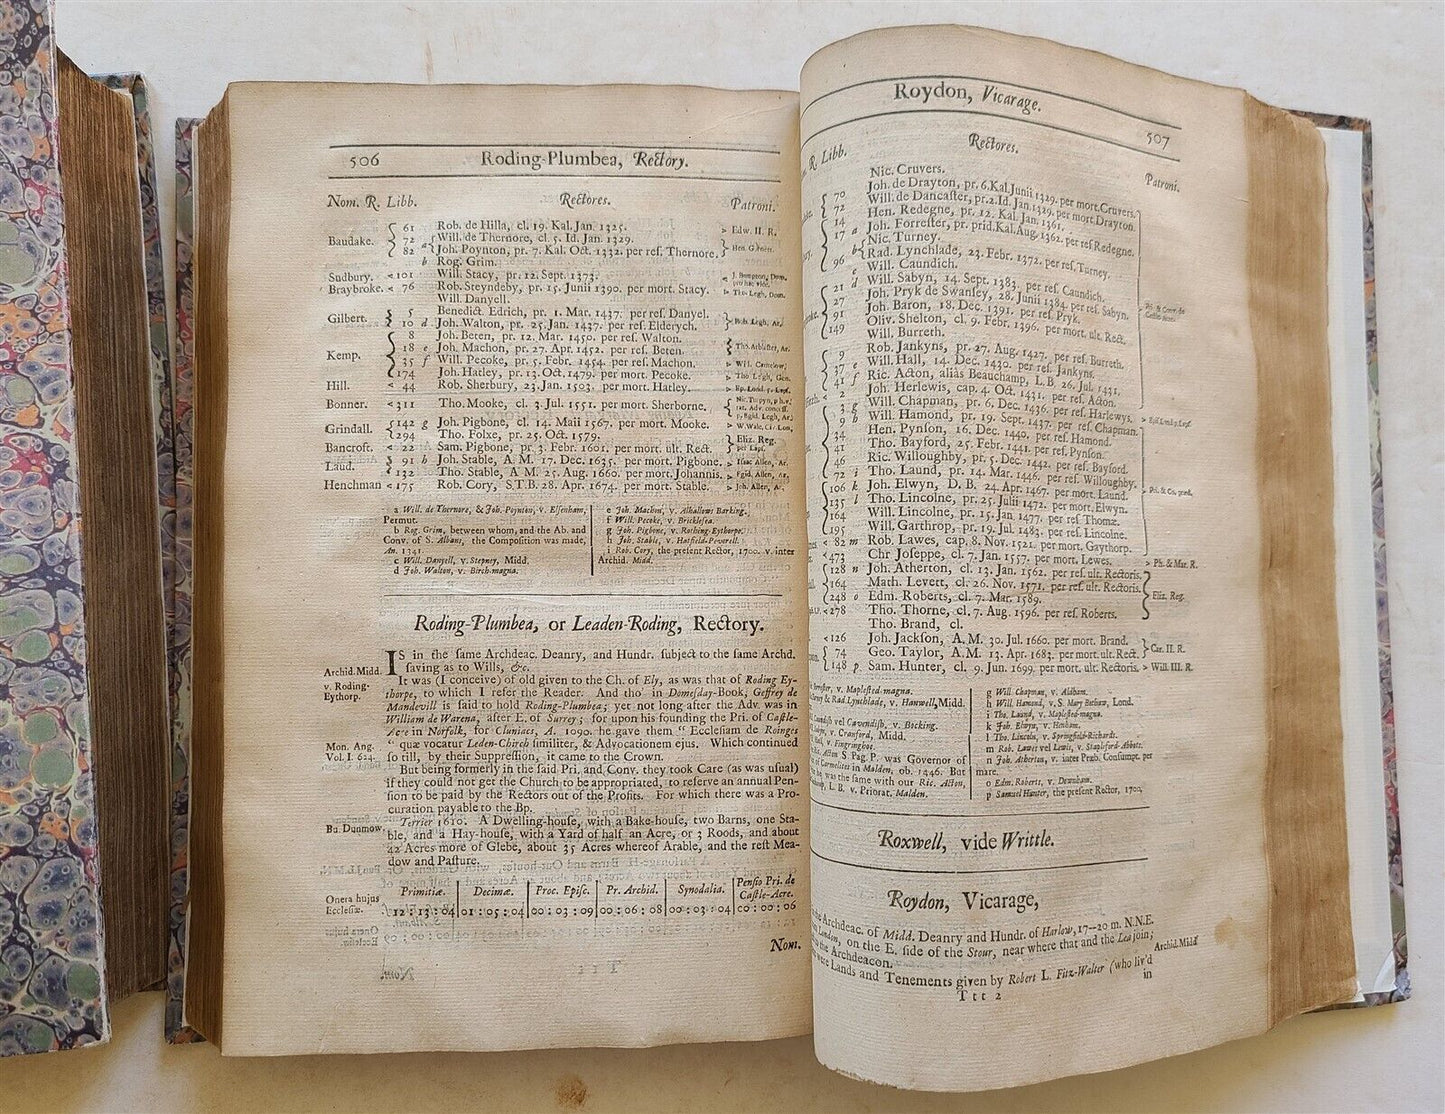 506 Roding-Plumbea, Rectory.
Nom. R. Libb. Rectores. Patroni.
Baudake. 61 Rob. de Hilla, cl. 19. Kal. Jan. 1325. Edw. II. R.
72 Will. de Thernore, cl. 5. Id. Jan. 1329.
82 a Joh. Poynton, pr. 7. Kal. Oct. 1332. per ref. Thernore.
b Rog. Grim.
Sudbury. 101 Will. Stacy, pr. 12. Sept. 1373.
Braybroke. 76 Rob. Steyndeby, pr. 15. Junii 1390. per mort. Stacy. Tho. Legh, Dom.
Will. Danyell.
Gilbert. 5 Benedict. Edrich, pr. 1. Mar. 1437. per ref. Danyel.
10 d Joh. Walton, pr. 25. Jan. 1437. per ref. Elderych. Rob. Legh, Ar.
Kemp. 8 Joh. Beten, pr. 12. Mar. 1450. per ref. Walton.
18 e Joh. Machon, pr. 27. Apr. 1452. per ref. Beten.
35 f Will. Pecoke, pr. 5. Febr. 1454. per ref. Machon.
174 Joh. Hatley, pr. 13. Oct. 1479. per mort. Pecoke. Tho. Legh, Gen.
Hill. 44 Rob. Sherbury, 23. Jan. 1503. per mort. Hatley.
Bonner. 311 Tho. Mooke, cl. 3. Jul. 1551. per mort. Sherborne.
Grindall. 142 g Joh. Pigbone, cl. 14. Maii 1567. per mort. Mooke.
294 Tho. Folxe, pr. 25. Oct. 1579. Eliz. Reg.
Bancroft. 22 Sam. Pigbone, pr. 3. Febr. 1601. per mort. ult. Rect. per Laps.
Laud. 91 h Joh. Stable, A. M. 17. Dec. 1635. per mort. Pigbone. Isaac Allen, Ar.
132 Tho. Stable, A M. 25. Aug. 1660. per mort. Johannis. Egid. Allen, Ar.
Henchman 175 Rob. Cory, S.T.B. 28. Apr. 1674. per mort. Stable. Joh. Allen, Ar.
a Will. de Thernore, & Joh. Poynton, v. Elsenham,
Permut.
b Rog. Grim, between whom, and the Ab. and
Conv. of S. Albans, the Composition was made,
An. 1341.
c Will. Danyell, v. Stepney, Midd.
d Joh. Walton, v. Birch-magna.
e Joh. Machon, v. Alhallows Barking.
f Will. Pecoke, v. Bricklesea.
g Joh. Pigbone, v. Rothing-Eythorpe.
h Joh. Stable, v. Hatfield-Peverell.
i Rob. Cory, the present Rector, 1700. v. inter
Archid. Midd.
Roding-Plumbea, or Leaden-Roding, Rectory.
Archid. Midd.
v. Roding-
Eythorp.
IS in the same Archdeac. Deanry, and Hundr. subject to the same Archd.
saving as to Wills, &c.
It was (I conceive) of old given to the Ch. of Ely, as was that of Roding Ey-
thorpe, to which I refer the Reader. And tho' in Domesday-Book, Geffrey de
Mandevill is said to hold Roding-Plumbea; yet not long after the Adv. was in
William de Warena, after E. of Surrey; for upon his founding the Pri. of Castle-
Acre in Norfolk, for Cluniacs, A. 1090. he gave them " Ecclesiam de Roinges
Mon. Ang.
Vol. I. 624.
" quæ vocatur Leden-Chirch similiter, & Advocationem ejus. Which continued
so till, by their Suppression, it came to the Crown.
But being formerly in the said Pri. and Conv. they took Care (as was usual)
if they could not get the Church to be appropriated, to reserve an annual Pen-
sion to be paid by the Rectors out of the Profits. For which there was a Pro-
curation payable to the Bp.
Bu. Dunmow.
Terrier 1610. A Dwelling-house, with a Bake-house, two Barns, one Sta-
ble, and a Hay-house, with a Yard of half an Acre, or 3 Roods, and about
42 Acres more of Glebe, about 35 Acres whereof Arable, and the rest Mea-
dow and Pasture.
Onera hujus
Ecclesiæ.
Primitiæ. Decimæ. Proc. Episc. Pr. Archid. Synodalia. Pensio Pri. de Castle-Acre.
12 : 13 : 04 01 : 05 : 04 00 : 03 : 09 00 : 06 : 08 00 : 03 : 04 00 : 00 : 06
Nom.
Roydon, Vicarage. 507
R. Libb. Rectores. Patroni.
Nic. Cruvers.
70 Joh. de Drayton, pr. 6. Kal. Junii 1329. per mort. Cruvers.
72 Will. de Dancaster, pr. 2. Id. Jan. 1329. per mort. Drayton.
14 Hen. Redegne, pr. 12. Kal. Jan. 1361.
17 a Joh. Forrester, pr. prid. Kal. Aug. 1362. per ref Redegne.
Nic. Turney.
96 b Rad. Lynchlade, 23. Febr. 1372. per ref. Turney.
Will. Caundich.
Will. Sabyn, 14. Sept. 1383. per ref. Caundich.
21 d Joh. Pryk de Swansey, 28. Junii 1384. per ref. Sabyn.
27 Joh. Baron, 18. Dec. 1391. per ref. Pryk.
91 Oliv. Shelton, cl. 9. Febr. 1396. per mort. ult. Rect.
149 Will. Burreth.
9 Rob. Jankyns, pr. 27. Aug. 1427. per ref. Burreth.
37 e Will. Hall, 14. Dec. 1430. per ref. Jankyns.
41 f Ric. Acton, alias Beauchamp, L.B. 26. Jul. 1431.
2 Joh. Herlewis, cap. 4. Oct. 1431. per ref. Acton.
3 g Will. Chapman, pr. 6. Dec. 1436. per ref. Harlewys.
9 h Will. Hamond, pr. 19. Sept. 1437. per ref. Chapman.
34 Hen. Pynson, 16. Dec. 1440. per ref. Hamond.
41 Tho. Bayford, 25. Febr. 1441. per ref. Pynson.
46 Ric. Willoughby, pr. 5. Dec. 1442. per ref. Bayford.
72 i Tho. Laund, pr. 14. Mar. 1446. per ref. Willoughby.
106 k Joh. Elwyn, D. B. 24. Apr. 1467. per mort. Laund.
135 l Tho. Lincolne, pr. 25. Julii 1472. per mort. Elwyn.
164 Will. Lincolne, pr. 15. Jan. 1477. per ref Thomæ.
195 Will. Garthrop, pr. 19. Jul. 1483. per ref. Lincolne.
82 m Rob. Lawes, cap. 8. Nov. 1521. per mort. Gaythorp.
473 Chr Joseppe, cl. 7. Jan. 1557. per mort. Lewes. Ph. & Mar. R.
128 n Joh. Atherton, cl. 13. Jan. 1562. per ref. ult. Rectoris.
164 Math. Levert, cl. 26. Nov. 1571. per ref. ult. Rectoris.
248 o Edm. Roberts, cl. 7. Mar. 1589. Eliz. Reg.
278 Tho. Thorne, cl. 7. Aug. 1596. per ref. Roberts.
Tho. Brand, cl.
126 Joh. Jackson, A. M. 30. Jul. 1660. per mort. Brand.
74 Geo. Taylor, A. M. 13. Apr. 1683. per mort. ult. Rect. Car. II. R.
148 p Sam. Hunter, cl. 9. Jun. 1699. per mort. ult. Rectoris. Will. III. R.
Forrester, v. Maplested-magna.
& Rad. Lynchlade, v. Hanwell, Midd.
Caundish vel Cavendish, v. Bocking.
v. Cranford, Midd.
Hall, v. Fingringhoe.
Acton S Pag. P. was Governor of
Carmelites in Malden, ob. 1446. But
he was the same with our Ric. Acton,
L. B. v. Priorat. Malden.
g Will. Chapman, v. Aldham.
h Will. Hamond, v. S. Mary Bothaw, Lond.
i Tho. Laund, v. Maplested-magna.
k Joh. Elwyn, v. Henham.
l Tho. Lincoln, v. Springfield-Richards.
m Rob. Lawes vel Lewis, v. Stapleford-Abbots.
n Joh. Atherton, v. inter Præb. Consumpt. per
mare.
o Edm. Roberts, v. Downham.
p Samuel Hunter, the present Rector, 1700,
Roxwell, vide Writtle.
Roydon, Vicarage,
the Archdeac. of Midd. Deanry and Hundr. of Harlow, 17--20 m. N.N.E.
London, on the E. side of the Stour, near where that and the Lea join;
the Archdeacon. Archid. Midd
were Lands and Tenements given by Robert L. Fitz-Walter (who liv'd
Ttt 2 in